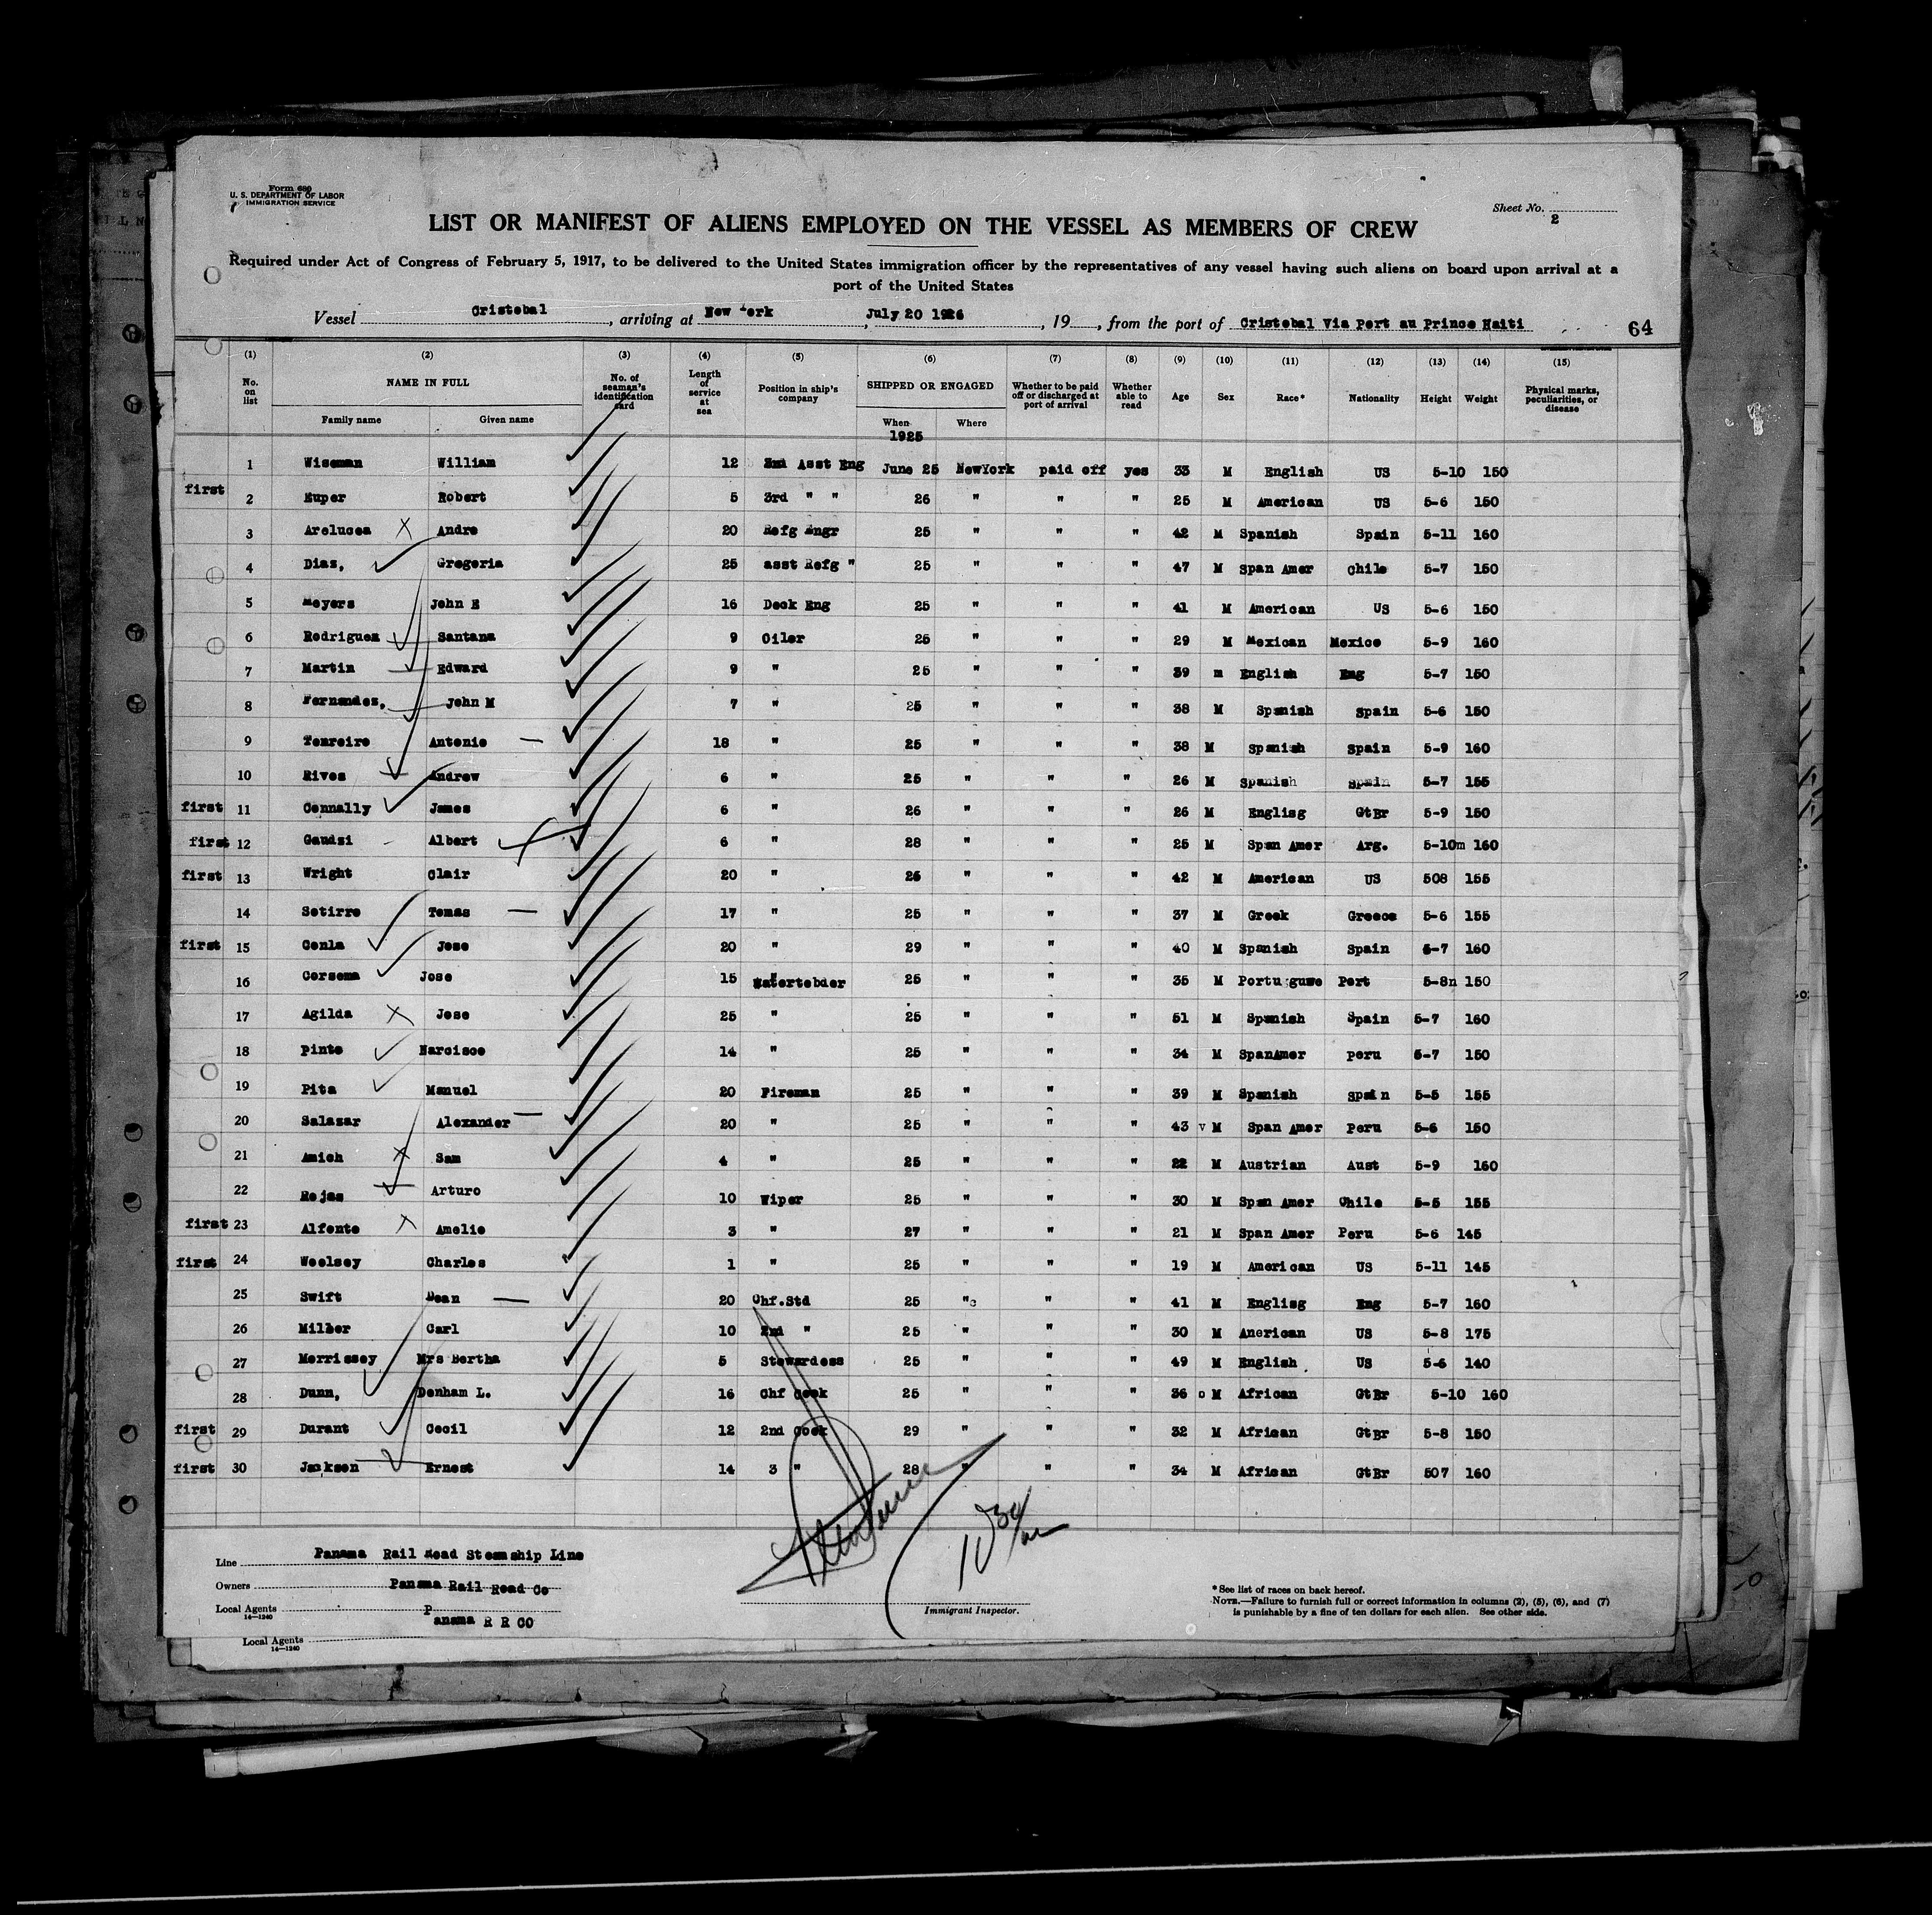 Form 680
U. S. DEPARTMENT OF LABOR
IMMIGRATION SERVICE
Sheet No. 2
LIST OR MANIFEST OF ALIENS EMPLOYED ON THE VESSEL AS MEMBERS OF CREW
Required under Act of Congress of February 5, 1917, to be delivered to the United States immigration officer by the representatives of any vessel having such aliens on board upon arrival at a
port of the United States
Vessel Cristobal, arriving at New York, July 20 1926, 19, from the port of Cristobal Via Port au Prince Haiti 64
(1) (2) (3) (4) (5) (6) (7) (8) (9) (10) (11) (12) (13) (14) (15)
No. on list NAME IN FULL Family name Given name No. of seaman's identification card Length of service at sea Position in ship's company SHIPPED OR ENGAGED When Where Whether to be paid off or discharged at port of arrival Whether able to read Age Sex Race* Nationality Height Weight Physical marks, peculiarities, or disease
1925
1 Wiseman William 12 2nd Asst Eng June 25 NewYork paid off yes 33 M English US 5-10 150
first 2 Euper Robert 5 3rd " " 26 " " " 25 M American US 5-6 150
3 Arelucea Andre 20 Refg Engr 25 " " " 42 M Spanish Spain 5-11 160
4 Dias, Gregoria 25 asst Refg " 25 " " " 47 M Span Amer Chile 5-7 150
5 Meyers John E 16 Deck Eng 25 " " " 41 M American US 5-6 150
6 Rodriguez Santana 9 Oiler 25 " " " 29 M Mexican Mexico 5-9 160
7 Martin Edward 9 " 25 " " " 39 m English Eng 5-7 150
8 Fernandez, John M 7 " 25 " " " 38 M Spanish Spain 5-6 150
9 Tenreiro Antonio 18 " 25 " " " 38 M Spanish Spain 5-9 160
10 Rivos Andrew 6 " 25 " " " 26 M Spanish Spain 5-7 155
first 11 Connally James 6 " 26 " " " 26 M Englisg GtBr 5-9 150
first 12 Gaudzi Albert 6 " 28 " " " 25 M Span Amer Arg. 5-10m 160
first 13 Wright Clair 20 " 26 " " " 42 M American US 508 155
14 Sotirro Tomas 17 " 25 " " " 37 M Greek Greece 5-6 155
first 15 Conla Jose 20 " 29 " " " 40 M Spanish Spain 5-7 160
16 Corsema Jose 15 Watertebder 25 " " " 35 M Portuguwe Port 5-8n 150
17 Agilda Jose 25 " 25 " " " 51 M Spanish Spain 5-7 160
18 Pinto Narcisco 14 " 25 " " " 34 M SpanAmer Peru 5-7 150
19 Pita Manuel 20 Fireman 25 " " " 39 M Spanish Spain 5-5 155
20 Salazar Alexander 20 " 25 " " " 43 v M Span Amer Peru 5-6 150
21 Amich Sam 4 " 25 " " " 22 M Austrian Aust 5-9 160
22 Rojas Arturo 10 Wiper 25 " " " 30 M Span Amer Chile 5-5 155
first 23 Alfonto Amelio 3 " 27 " " " 21 M Span Amer Peru 5-6 145
first 24 Woolsey Charles 1 " 25 " " " 19 M American US 5-11 145
25 Swift Dean 20 Chf.Std 25 " " " 41 M Englisg Eng 5-7 160
26 Carl 10 2nd " 25 " " " 30 M Anerican US 5-8 175
27 Morrissey Mrs Bertha 5 Stewardess 25 " " " 49 M English US 5-6 140
28 Dunn, Denham L. 16 Chf Cook 25 " " " 36 o M African GtBr 5-10 160
first 29 Durant Cecil 12 2nd Cook 29 " " " 32 M African GtBr 5-8 150
first 30 Jackson Ernest 14 3 " 28 " " " 34 M African GtBr 507 160
Line Panama Rail Road Steamship Line
Owners Panama Rail Road Co
Local Agents Panama R R CO
14-1240
Immigrant Inspector.
*See list of races on back hereof.
NOTE.—Failure to furnish full or correct information in columns (2), (5), (6), and (7)
is punishable by a fine of ten dollars for each alien. See other side.
Local Agents
14-1240